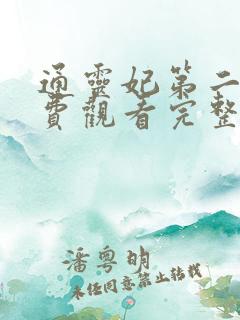 通靈妃第二
費觀看完整
潘粵明
未經同意禁止轉載